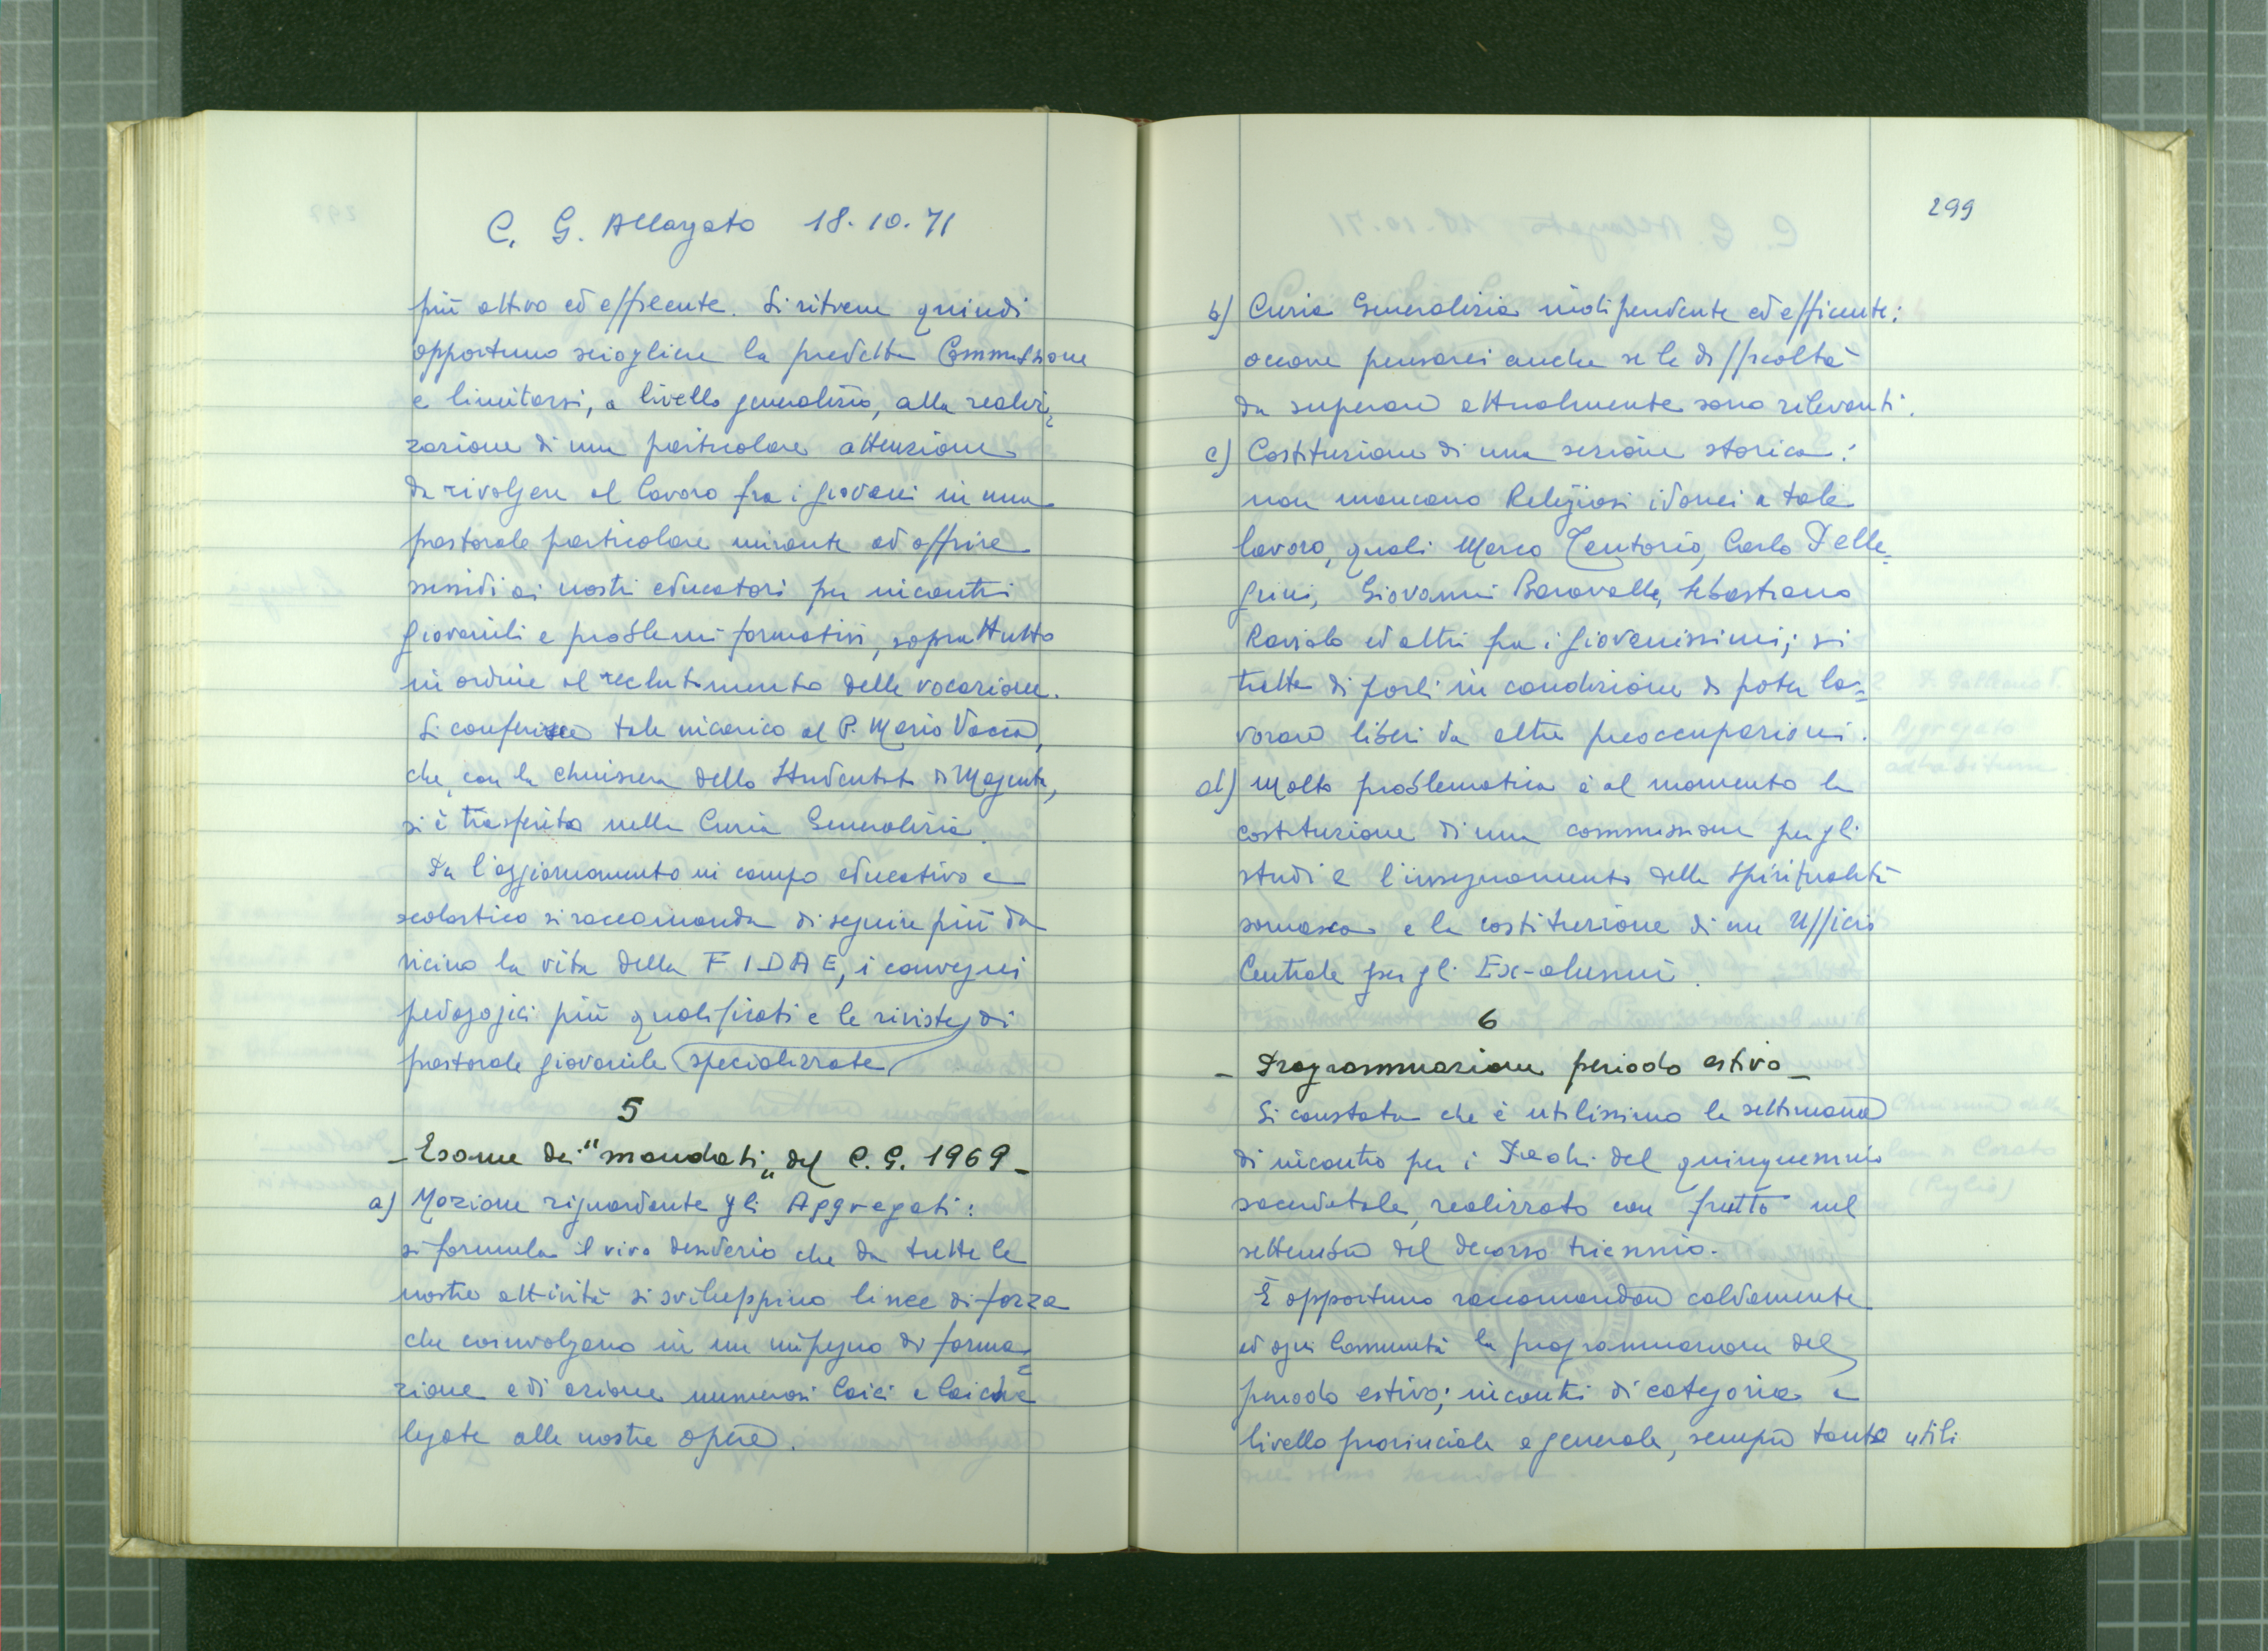 C. G. Allargato 18.10.71
più attivo ed efficente. Si ritiene quindi
opportuno sciogliere la predetta Commissione
e limitarsi, a livello generalizio, alla realiz=
zazione di una particolare attenzione
da rivolgere al lavoro fra i giovani in una
pastorale particolare mirante ad offrire
sussidi ai nostri educatori per incontri
giovanili e problemi formativi, soprattutto
in ordine al reclutamento delle vocazione.
Si conferisce tale incarico al P. Mario Vacca,
che, con la chiusura dello Studentato di Magenta,
si è trasferito nella Curia Generalizia.
Per l'aggiornamento in campo educativo e
scolastico si raccomanda di seguire più da
vicino la vita della FIDAE, i convegni
pedagogici più qualificati e le riviste di
pastorale giovanile specializzate
5
- Esame dei "mandati„ del C. G. 1969 -
a) Mozione riguardante gli Aggregati:
si formula il vivo desiderio che da tutte le
nostre attività si sviluppino linee di forza
che coinvolgano in un impegno di forma=
zione e di azione numerosi laici e laiche
legate alle nostre opere.
299
b) Curia Generalizia indipendente ed efficente:
occorre pensarci anche se le difficoltà
da superare attualmente sono rilevanti.
c) Costituzione di una sezione storica:
non mancano Religiosi idonei a tale
lavoro, quali Marco Tentorio, Carlo Pelle=
grini, Giovanni Baravalle, Sebastiano
Raviolo ed altri fra i giovanissimi; si
tratta di porli in condizione di poter la=
vorare liberi da altre preoccupazioni.
d) Molto problematica è al momento la
costituzione di una commissione per gli
studi e l'insegnamento della Spiritualità
somasca e la costituzione di un Ufficio
Centrale per gli Ex-alunni.
6
- Programmazione periodo estivo -
Si constata che è utilissimo la settimana
di incontro per i Padri del quinquennio
sacerdotale, realizzato con frutto nel
settembre del decorso triennio.
È opportuno raccomandare caldamente
ad ogni Comunità la programmazione del
periodo estivo; incontri di categoria a
livello provinciale e generale, sempre tanto utili